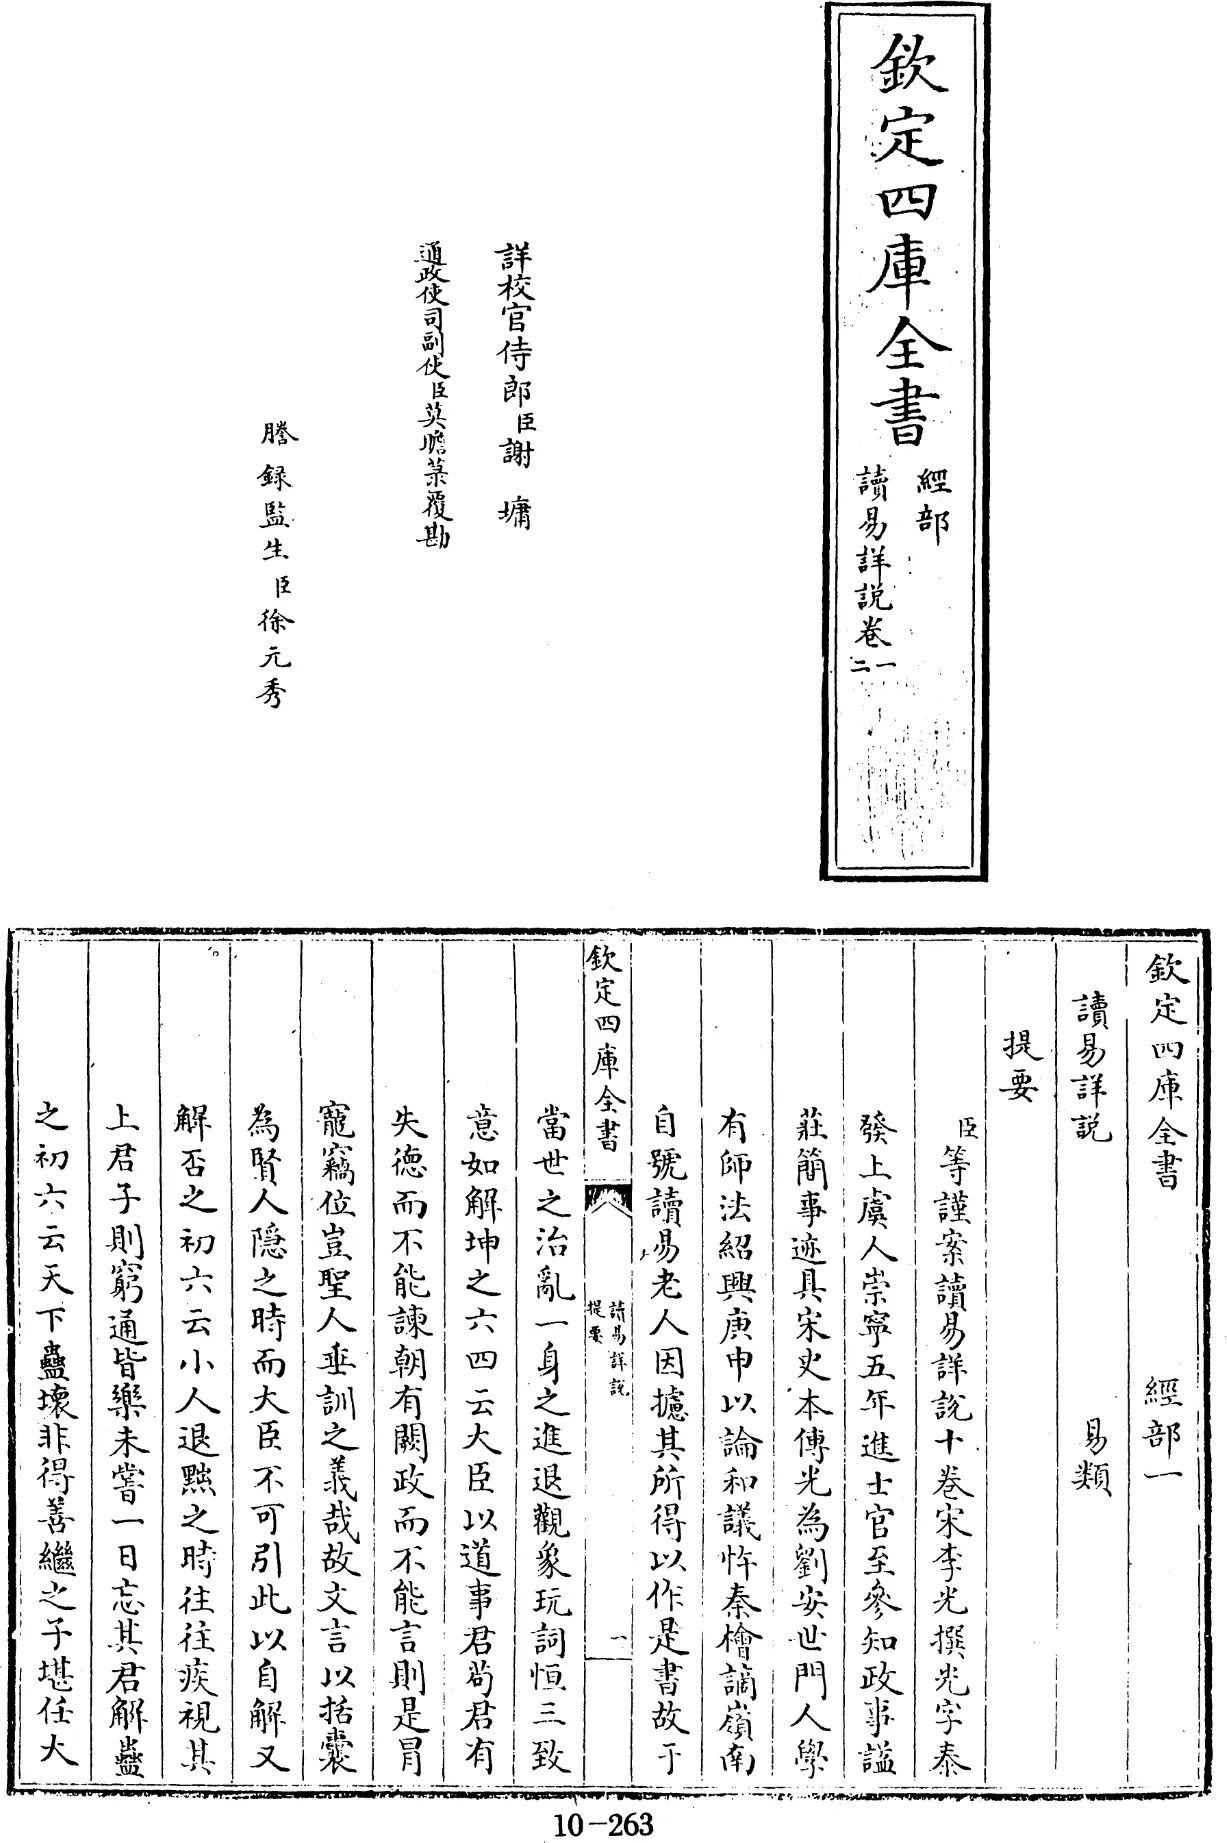 欽定四庫全書
經部
讀易詳說卷一二
詳校官侍郎臣謝墉
通政使司副使臣莫瞻菉覆勘
謄錄監生臣徐元秀
欽定四庫全書 經部一
讀易詳說 易類
提要
臣等謹案讀易詳說十卷宋李光撰光字泰
發上虞人崇寧五年進士官至參知政事諡
莊簡事迹具宋史本傳光為劉安世門人學
有師法紹興庚申以論和議忤秦檜謫嶺南
自號讀易老人因攄其所得以作是書故于
欽定四庫全書 讀易詳說 提要 一
當世之治亂一身之進退觀象玩詞恒三致
意如解坤之六四云大臣以道事君苟君有
失德而不能諫朝有闕政而不能言則是冒
寵竊位豈聖人垂訓之義哉故文言以括囊
為賢人隱之時而大臣不可引此以自解又
解否之初六云小人退黜之時往往疾視其
上君子則窮通皆樂未嘗一日忘其君解蠱
之初六云天下蠱壞非得善繼之子堪任大
10-263